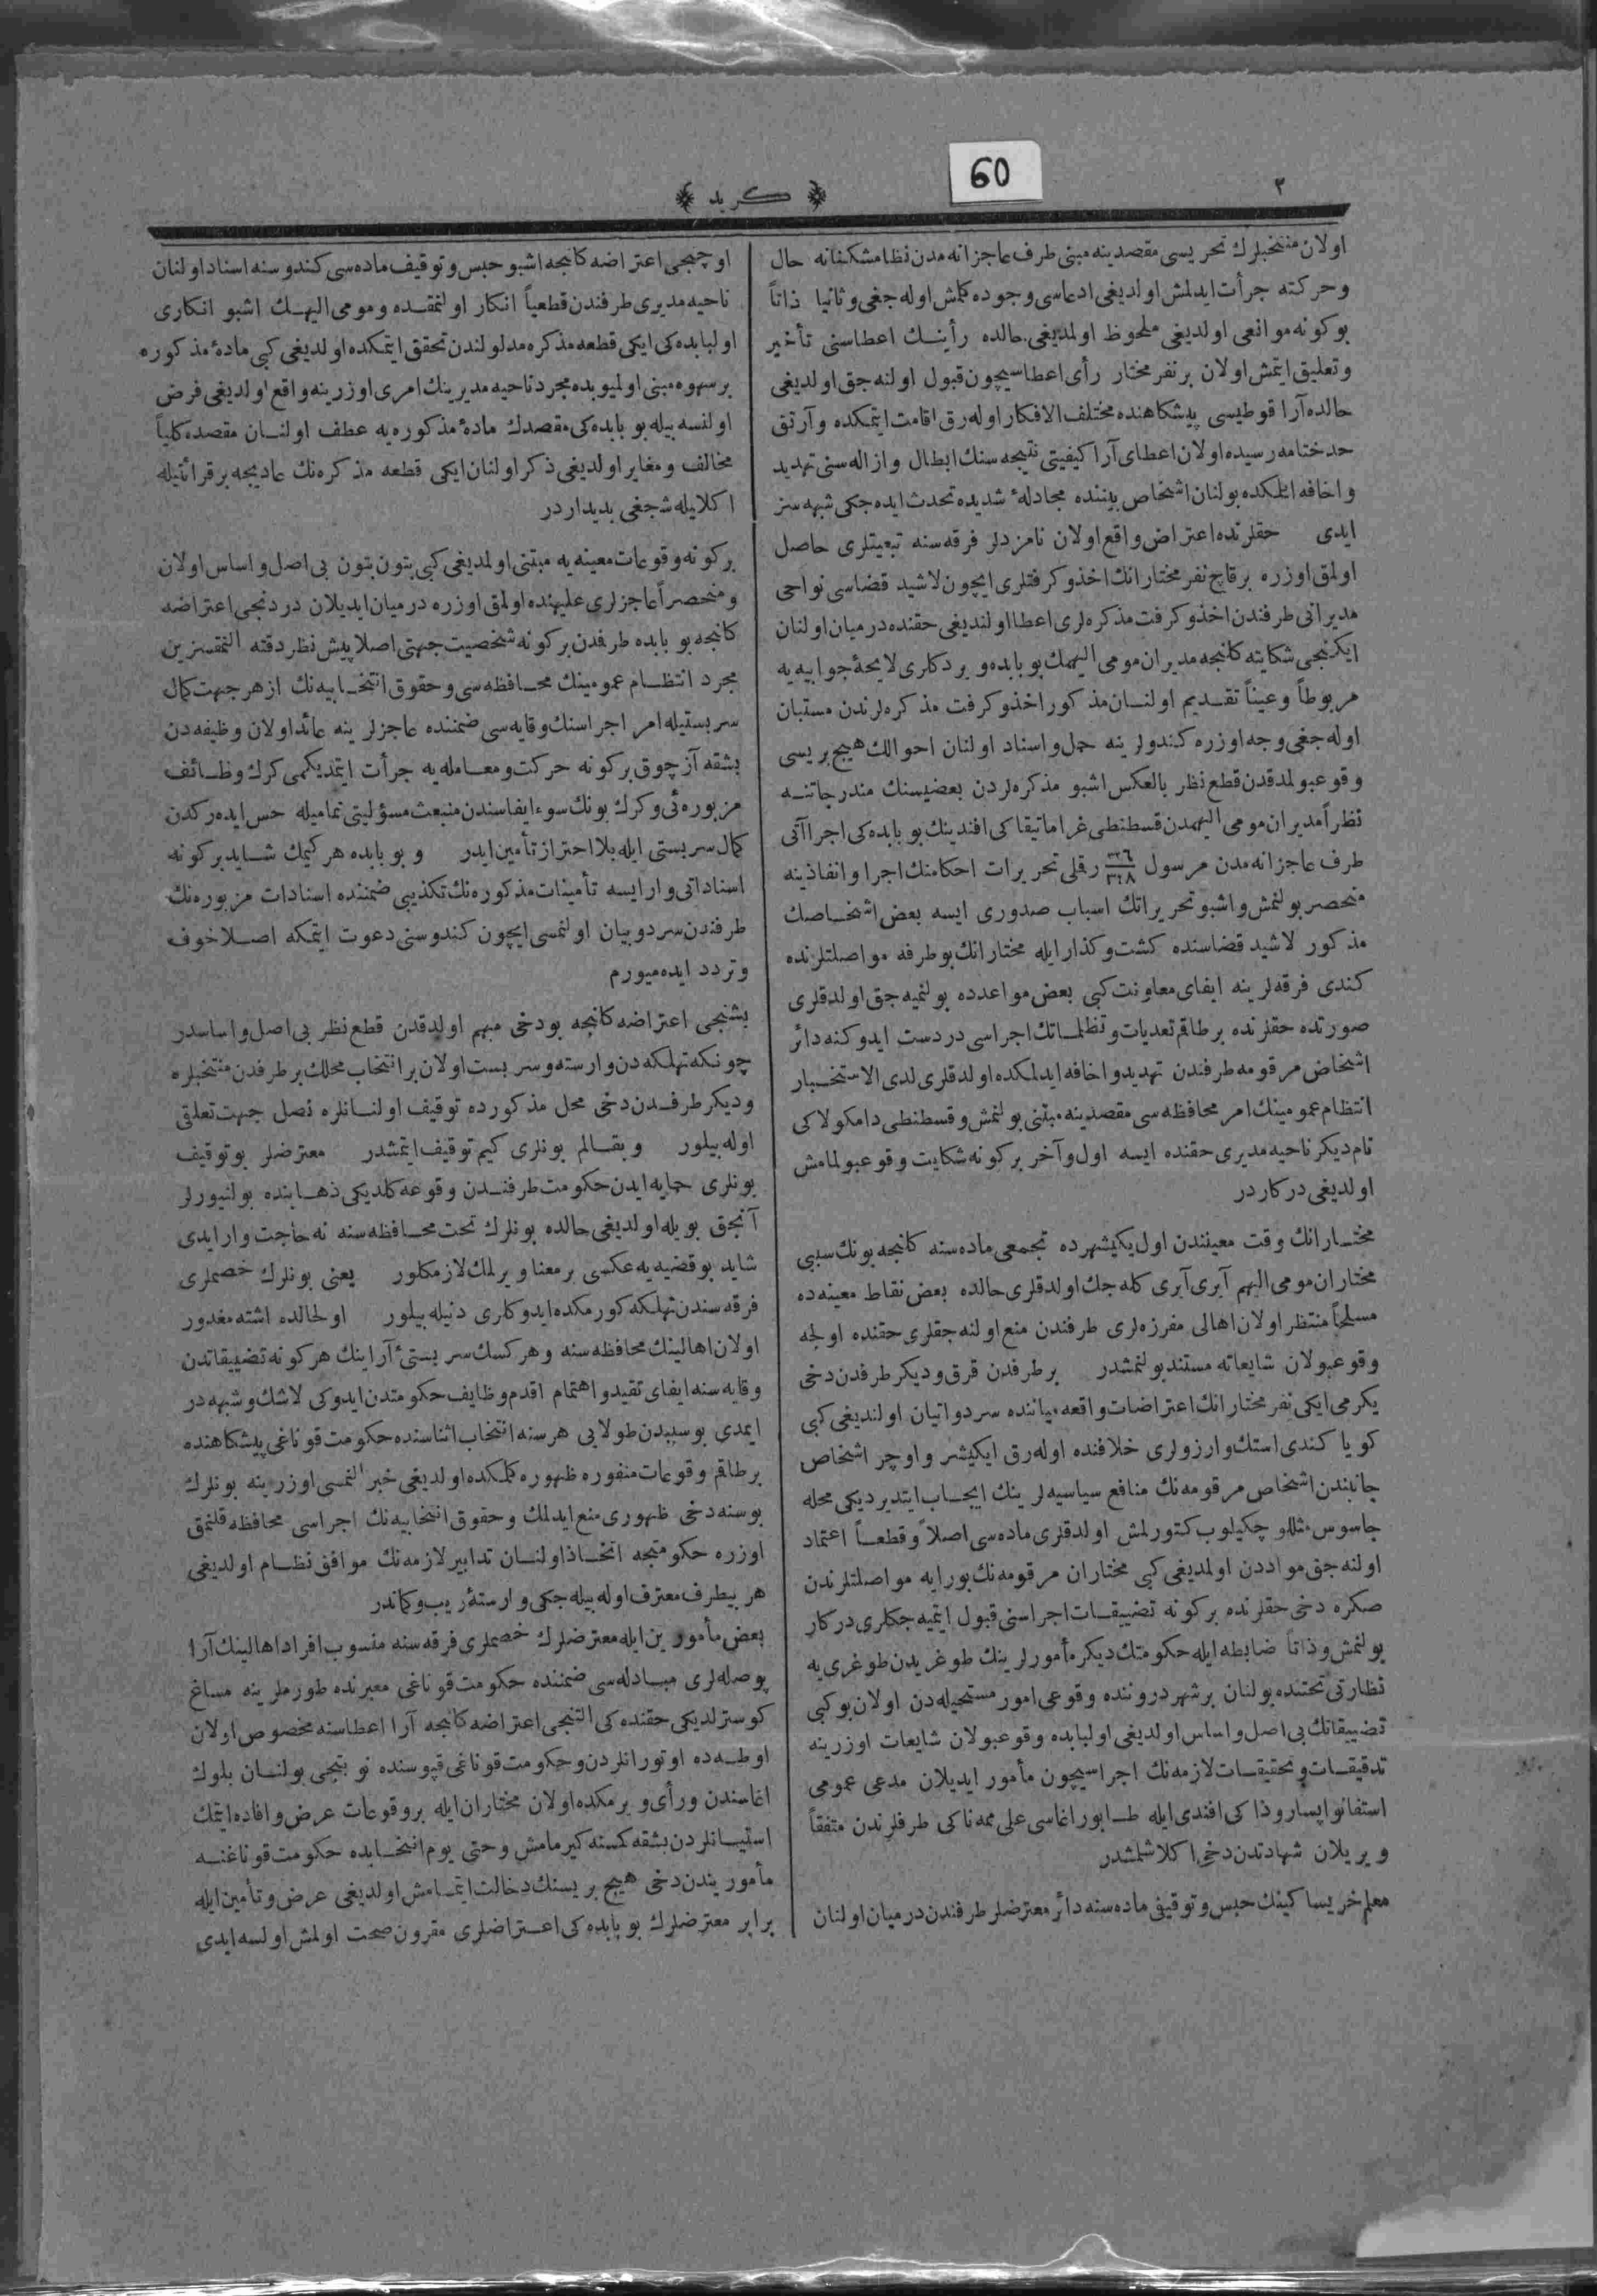 60
٢
﴿ كريد ﴾
اولان منتخبلرك تحريسى مقصدينه مبنى طرف عاجزانه مدن نظامشكنانه حال
وحركته جرأت ايدلمش اولديغى ادعاسى وجوده كلمش اوله جغى وثانيا ذاتاً
بوكونه موانعى اولديغى ملحوظ اولمديغى حالده رأينك اعطاسنى تأخير
وتعليق ايتمش اولان برنفر مختار رأى اعطاسيچون قبول اولنه جق اولديغى
حالده آرا قوطيسى پيشكاهنده مختلف الافكار اوله رق اقامت ايتمكده وآرتق
حد ختامه رسيده اولان اعطاى آرا كيفيتى نتيجه سنك ابطال وازاله سنى تهديد
واخافه ايلمكده بولنان اشخاص بيننده مجادلهٔ شديده تحدث ايده جكى شبهه سز
ايدى حقلرنده اعتراض واقع اولان نامزدلر فرقه سنه تبعيتلرى حاصل
اولمق اوزره برقاچ نفر مختارانك اخذ وكرفتلرى ايچون لاشيد قضاسى نواحى
مديرانى طرفندن اخذ وكرفت مذكره لرى اعطا اولنديغى حقنده درميان اولنان
ايكنجى شكايته كلنجه مديران مومى اليهمك بو بابده ويردكلرى لايحهٔ جوابيه يه
مربوطاً وعيناً تقديم اولنان مذكور اخذ وكرفت مذكره لرندن مستبان
اوله جغى وجه اوزره كندولرينه حمل واسناد اولنان احوالك هيچ بريسى
وقوعبولمدقدن قطع نظر بالعكس اشبو مذكره لردن بعضيسنك مندرجاتنه
نظراً مديران مومى اليهمدن قسطنطى غراماتيقاكى افندينك بو بابده كى اجراآتى
طرف عاجزانه مدن مرسول رقملى تحريرات احكامنك اجرا وانفاذينه
منحصر بولنمش واشبو تحريراتك اسباب صدورى ايسه بعض اشخاصك
مذكور لاشيد قضاسنده كشت وكذار ايله مختارانك بو طرفه مواصلتلرنده
كندى فرقه لرينه ايفاى معاونت كبى بعض مواعدده بولنميه جق اولدقلرى
صورتده حقلرنده برطاقم تعديات وتظلماتك اجراسى دردست ايدوكنه دائر
اشخاص مرقومه طرفندن تهديد واخافه ايدلمكده اولدقلرى لدى الاستخبار
انتظام عمومينك امر محافظه سى مقصدينه مبتنى بولنمش وقسطنطى دامكولاكى
نام ديكر ناحيه مديرى حقنده ايسه اول وآخر بركونه شكايت وقوعبولمامش
اولديغى دركاردر
مختارانك وقت معينندن اول يكيشهرده تجمعى ماده سنه كلنجه بونك سببى
مختاران مومى اليهم آيرى آيرى كله جك اولدقلرى حالده بعض نقاط معينه ده
مسلحاً منتظر اولان اهالى مفرزه لرى طرفندن منع اولنه جقلرى حقنده اولجه
وقوعبولان شايعاته مستند بولنمشدر برطرفدن قرق وديكر طرفدن دخى
يكرمى ايكى نفر مختارانك اعتراضات واقعه مياننده سرد واتيان اولنديغى كبى
كويا كندى استك وارزولرى خلافنده اوله رق ايكيشر واوچر اشخاص
جانبندن اشخاص مرقومه نك منافع سياسيه لرينك ايجاب ايتديرديكى محله
جاسوس مثللو چكيلوب كتورلمش اولدقلرى ماده سى اصلاً وقطعاً اعتماد
اولنه جق موادددن اولمديغى كبى مختاران مرقومه نك بورايه مواصلتلرندن
صكره دخى حقلرنده بركونه تضييقات اجراسنى قبول ايتميه جكلرى دركار
بولنمش وذاتاً ضابطه ايله حكومتك ديكر مأمورلرينك طوغريدن طوغرى يه
نظارتى تحتنده بولنان برشهر دروننده وقوعى امور مستحيله دن اولان بوكبى
تضييقاتك بى اصل واساس اولديغى اولبابده وقوعبولان شايعات اوزرينه
تدقيقات وتحقيقات لازمه نك اجراسيچون مأمور ايديلان مدعى عمومى
استفانو اپساروذاكى افندى ايله طابور اغاسى على ممه ناكى طرفلرندن متفقاً
ويريلان شهادتدن دخى اكلاشلمشدر
معلم خريساكينك حبس وتوقيفى ماده سنه دائر معترضلر طرفندن درميان اولنان
اوچنجى اعتراضه كلنجه اشبو حبس وتوقيف ماده سى كندوسنه اسناد اولنان
ناحيه مديرى طرفندن قطعياً انكار اولنمقده ومومى اليهك اشبو انكارى
اولبابده كى ايكى قطعه مذكره مدلولندن تحقق ايتمكده اولديغى كبى مادهٔ مذكوره
برسهوه مبنى اولميوبده مجرد ناحيه مديرينك امرى اوزرينه واقع اولديغى فرض
اولنسه بيله بو بابده كى مقصدك مادهٔ مذكوره يه عطف اولنان مقصده كلياً
مخالف ومغاير اولديغى ذكر اولنان ايكى قطعه مذكره نك عاديجه برقرائتيله
اكلاشيله جغى بديداردر
بركونه وقوعات معينه يه مبتنى اولمديغى كبى بتون بتون بى اصل واساس اولان
ومنحصراً عاجزلرى عليهنده اولمق اوزره درميان ايديلان دردنجى اعتراضه
كلنجه بو بابده طرفدن بركونه شخصيت جهتى اصلا پيش نظر دقته النمقسزين
مجرد انتظام عمومينك محافظه سى وحقوق انتخابيه نك ازهر جهت كمال
سربستيله امر اجراسنك وقايه سى ضمننده عاجزلرينه عائد اولان وظيفه دن
بشقه آز چوق بركونه حركت ومعامله يه جرأت ايتمديكمى كرك وظائف
مزبوره ئى وكرك بونك سوء ايفاسندن منبعث مسؤليتى تماميله حس ايده ركدن
كمال سربستى ايله بلا احتراز تأمين ايدر وبو بابده هركيمك شايد بركونه
اسناداتى وارايسه تأمينات مذكوره نك تكذيبى ضمننده اسنادات مزبوره نك
طرفندن سرد وبيان اولنمسى ايچون كندوسنى دعوت ايتمكه اصلا خوف
وتردد ايده ميورم
بشنجى اعتراضه كلنجه بودخى مبهم اولدقدن قطع نظر بى اصل واساسدر
چونكه تهلكه دن وارسته وسربست اولان برانتخاب محلك برطرفدن منتخبلره
وديكر طرفدن دخى محل مذكورده توقيف اولنانلره نصل جهت تعلقى
اوله بيلور وبقالم بونلرى كيم توقيف ايتمشدر معترضلر بو توقيف
بونلرى حمايه ايدن حكومت طرفندن وقوعه كلديكى ذهابنده بولنيورلر
آنجق بويله اولديغى حالده بونلرك تحت محافظه سنه نه حاجت وار ايدى
شايد بو قضيه يه عكسى برمعنا ويرلمك لازمكلور يعنى بونلرك خصملرى
فرقه سندن تهلكه كورمكده ايدوكلرى دنيله بيلور اولحالده اشته مغدور
اولان اهالينك محافظه سنه وهركسك سربستىٔ آراينك هركونه تضييقاتدن
وقايه سنه ايفاى تقيد واهتمام اقدم وظايف حكومتدن ايدوكى لاشك وشبهه در
ايمدى بو سببدن طولايى هرسنه انتخاب اثناسنده حكومت قوناغى پيشكاهنده
برطاقم وقوعات منفوره ظهوره كلمكده اولديغى خبر النمسى اوزرينه بونلرك
بوسنه دخى ظهورى منع ايدلمك وحقوق انتخابيه نك اجراسى محافظه قلنمق
اوزره حكومتجه اتخاذ اولنان تدابير لازمه نك موافق نظام اولديغى
هر بيطرف معترف اوله بيله جكى وارستهٔ ريب وكماندر
بعض مأمورين ايله معترضلرك خصملرى فرقه سنه منسوب افراد اهالينك آرا
پوصله لرى مبادله سى ضمننده حكومت قوناغى معبرنده طورملرينه مساغ
كوسترلديكى حقنده كى التنجى اعتراضه كلنجه آرا اعطاسنه مخصوص اولان
اوطه ده اوتورانلردن وحكومت قوناغى قپوسنده نوبتجى بولنان بلوك
اغاسندن ورأى ويرمكده اولان مختاران ايله بروقوعات عرض وافاده ايتمك
استيانلردن بشقه كمسنه كيرمامش وحتى يوم انتخابده حكومت قوناغنه
مأموريندن دخى هيچ بريسنك دخالت ايتمامش اولديغى عرض وتأمين ايله
برابر معترضلرك بو بابده كى اعتراضلرى مقرون صحت اولمش اولسه ايدى